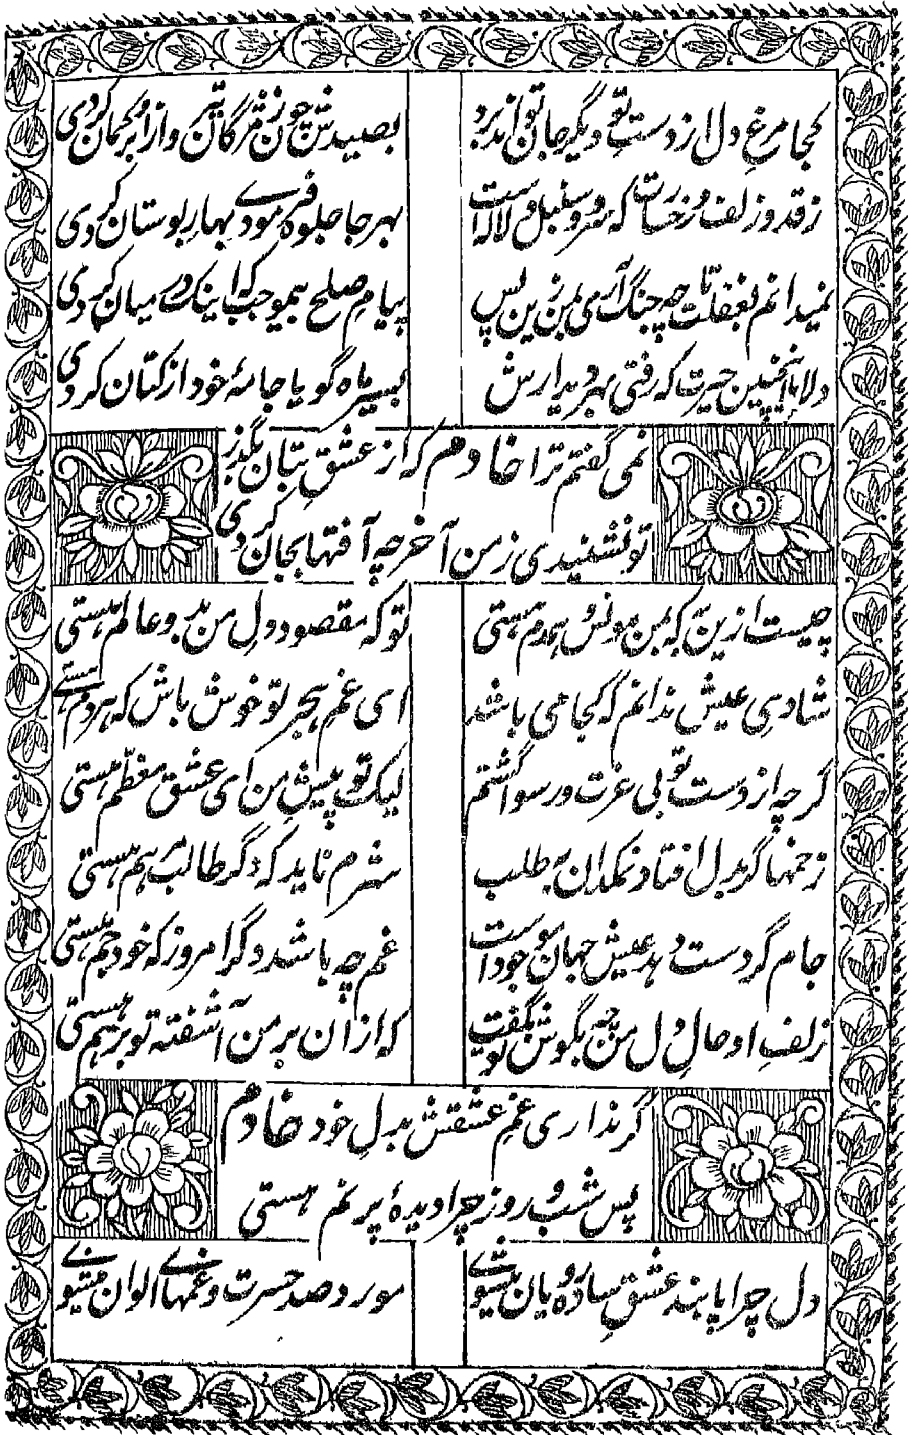 کجا مرغِ دل از دستِ تو دیگر جان تواند برد
بصیدش چون ز مژگان تیر و از ابرو کمان کردی
ز قد و زلف و رخسارت که سرو و سنبل و لاله است
بهر جا جلوه فرمودے بهارِ بوستان کردی
نمیدانم تغافلت تا چه جنگ آری بمن زین پس
پیامِ صلح بیموجب که اینک در میان کردی
دلا با اینچنین حیرت که رفتی بهر دیدارش
بسیرِ ماه گویا جامهٔ خود از کتان کردی
نمی گفتم ترا خادم که از عشقِ بتان بگذر
تو نشنیدی ز من آخر چه آفتها بجان کردی
چیست ازین به که بمن مونس و همدم هستی
تو که مقصودِ دلِ من بدو عالم هستی
شادیِ عیش ندانم که کجا می باشد
ای غمِ هجر تو خوش باش که هر دم هستے
گرچه از دستِ تو بی عزت و رسوا گشتم
لیک تو پیشِ من ای عشق معظّم هستی
زخمها گر بدل افتاد نمکدان به طلب
شرم ناید که دگر طالبِ مرهم هستی
جام گر دست دهد عیشِ جهان موجود است
غم چه باشد دگر امروز که خود جم هستی
زلفِ او حالِ دلِ من چه بگوشِ تو بگفت
که ازان بر منِ آشفته تو برهم هستی
گر نداری غمِ عشقش بدلِ خود خادم
پس شب و روز چرا دیدهٔ پر نم هستی
دل چرا پابندِ عشقِ ساده رویان میشوے
موردِ صد حسرت و غمهاے الوان میشوے